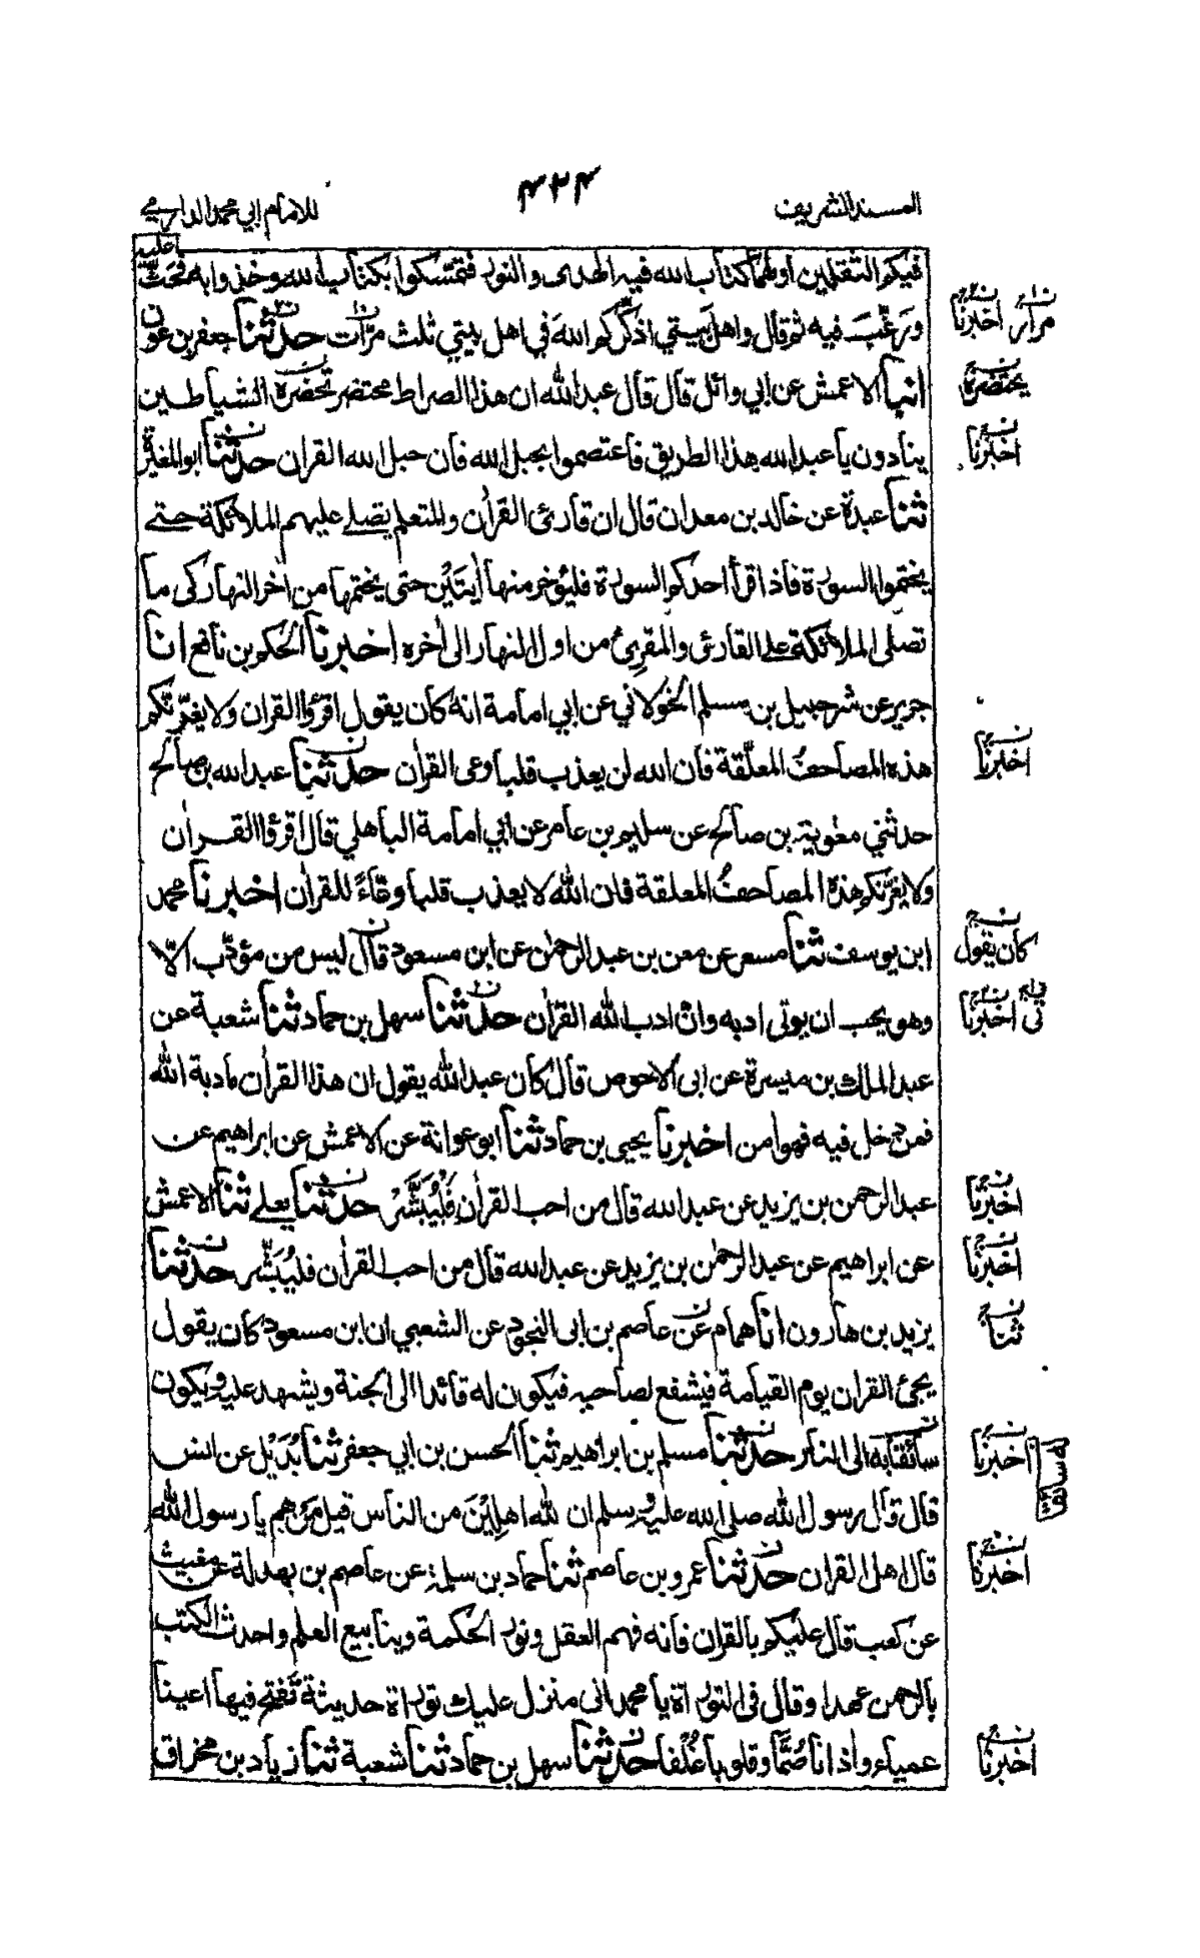 المسند الشريف
٤٢٤
للامام ابي محمد الدارمي
فيكم الثقلين اولهما كتاب الله فيه الهدى والنور فتمسكوا بكتاب الله وخذوا به فحَثَّ عليه
ورَغَّبَ فيه ثم قال واهل بيتي اذكّركم الله في اهل بيتي ثلث مرّات حدثنا جعفر بن عون
انبا الاعمش عن ابي وائل قال قال عبد الله ان هذا الصراط محتضر تحضره الشياطين
ينادون يا عبد الله هذا الطريق فاعتصموا بحبل الله فان حبل الله القران حدثنا ابو المغيرة
ثنا عبدة عن خالد بن معدان قال ان قارئ القراٰن والمتعلم يصلے عليهم الملائكة حتے
يختموا السورة فاذا اقرأ احدكم السورة فليؤخر منها اٰيتَيْن حتى يختمها من اٰخر النهار كى ما
تصلى الملائكة علے القارئ والمقرئ من اول النهار الى اٰخره اخبرنا الحكم بن نافع انا
جرير عن شرحبيل بن مسلم الخولاني عن ابي امامة انه كان يقول اقرؤا القران ولا يغرّنّكم
هذه المصاحفُ المعلّقة فان الله لن يعذب قلبا وعى القراٰن حدثنا عبد الله بن صالح
حدثني معٰوية بن صالح عن سليم بن عامر عن ابي امامة الباهلي قال اقرؤا القراٰن
ولا يغرّنكم هذه المصاحفُ المعلقة فان الله لا يعذب قلبا وعاءً للقراٰن اخبرنا محمد
ابن يوسف ثنا مسعر عن معن بن عبد الرحمٰن عن ابن مسعود قال ليس من مؤدّب الّا
وهو يحب ان يوتى ادبه وانّ ادب الله القراٰن حدثنا سهل بن حماد ثنا شعبة عن
عبد الملك بن ميسرة عن ابى الاحوص قال كان عبد الله يقول ان هذا القراٰن مادبة الله
فمن دخل فيه فهو اٰمن اخبرنا يحيى بن حماد ثنا ابو عوانة عن الاعمش عن ابراهيم عن
عبد الرحمن بن يزيد عن عبد الله قال من احب القراٰن فَلْيُبَشَّرْ حدثنا يعلے ثنا الاعمش
عن ابراهيم عن عبد الرحمٰن بن يزيد عن عبد الله قال من احب القراٰن فليُبَشَّر حدثنا
يزيد بن هارون انا همام عن عاصم بن ابى النجود عن الشعبي ان ابن مسعود كان يقول
يجئ القران يوم القيامة فيشفع لصاحبه فيكون له قائدا الى الجنة ويشهد عليه ويكون
سائقا به الى النار حدثنا مسلم بن ابراهيم ثنا الحسن بن ابي جعفر ثنا بُدَيْل عن انس
قال قال رسول الله صلى الله عليه وسلم ان لله اهلِيْنَ من الناس قيل من هم يا رسول الله
قال اهل القران حدثنا عمرو بن عاصم ثنا حماد بن سلمة عن عاصم بن بهدلة عن مغيث
عن كعب قال عليكم بالقران فانه فهم العقل ونور الحكمة وينابيع العلم واحدث الكتب
بالرحمن عهدا وقال فى التوراة يا محمد انى منزل عليك توراة حديثة تفتح فيها اعينا
عمياء واٰذانا صُمًّا وقلوبا غُلْفا حدثنا سهل بن حماد ثنا شعبة ثنا زياد بن مخراق
مرار اخبرنا
يحتضره
اخبرنا
اخبرنا
كان يقول
اخبرنا
اخبرنا
اخبرنا
ثنا
اخبرنا
اخبرنا
اخبرنا